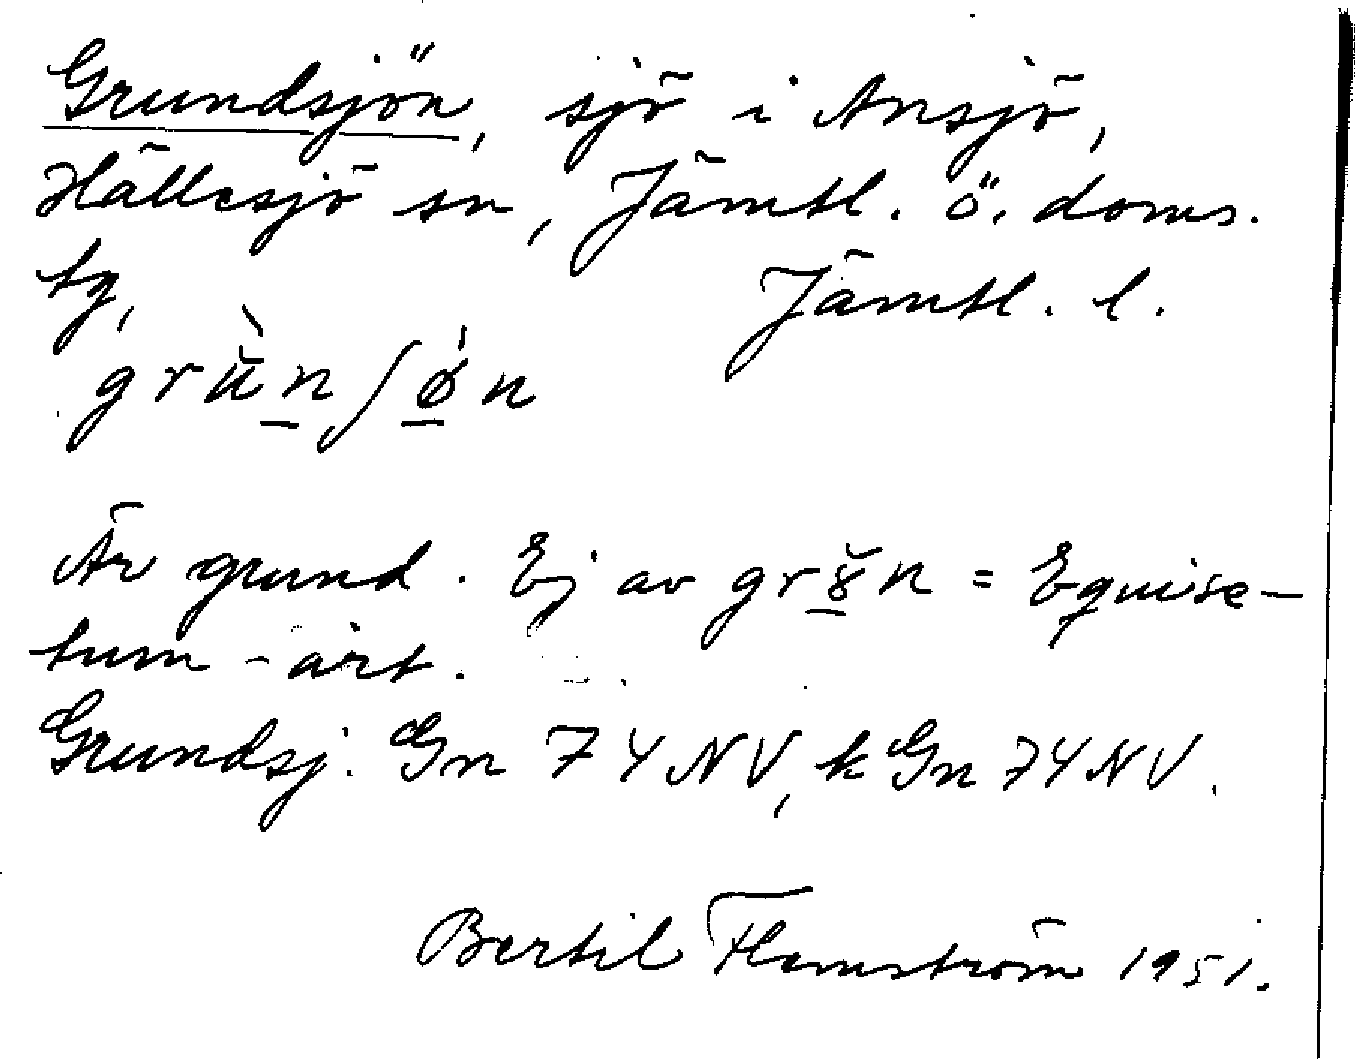 Grundsjön, sjö i Ansjö,
Hällesjö sn, Jämtl. ö. doms.
tg, Jämtl. l.
grǜn̲ʃǿ̲n
Är grund. Ej av gr ɣ̲̆ n = Equise-
tum-art.
Grundsj. Gn 74NV, kGn 74NV.
Bertil Flemström 1951.